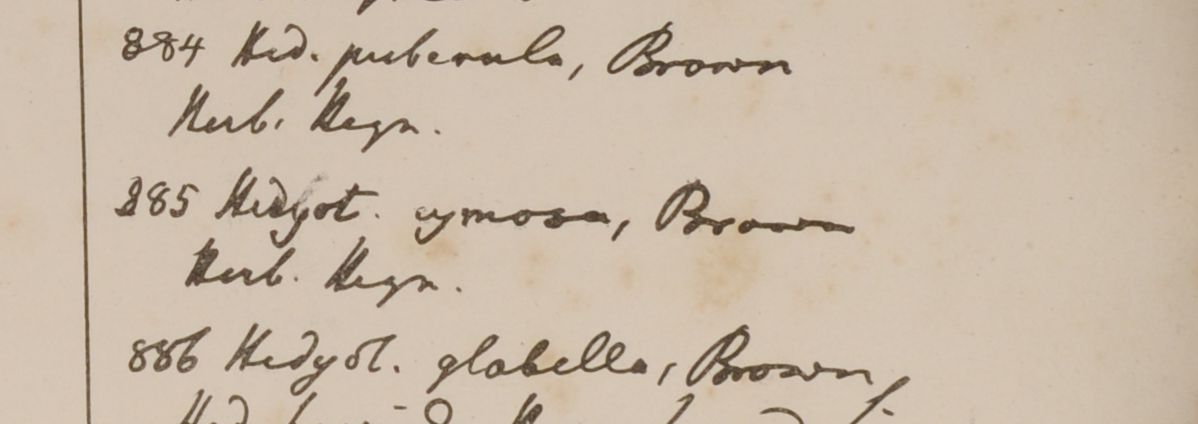 884 Hed. puberula, Brown
Herb. Heyn.
885 Hedyot. cymosa, Brown
Herb. Heyn.
886 Hedyot. glabella, Brown,